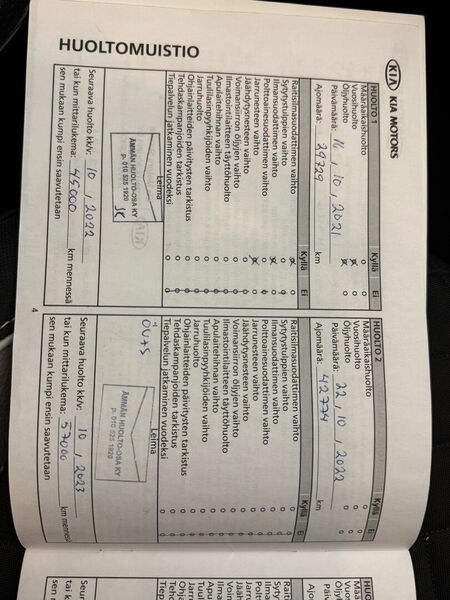 HUOLTOMUISTIO
KIA KIA MOTORS
HUOLTO 1 Kyllä Ei
Määräaikaishuolto o o
Vuosihuolto x o
Öljyhuolto x o
Päivämäärä: 16, 10, 2021
Ajomäärä: 29729 km
Kyllä Ei
Raitisilmasuodattimen vaihto
Sytytystulppien vaihto
Ilmansuodattimen vaihto
Polttoainesuodattimen vaihto
Jarrunesteen vaihto
Jäähdytysnesteen vaihto
Voimansiirron öljyjen vaihto
Ilmastointilaitteen täyttöhuolto
Apulaitehihnan vaihto
Tuulilasinpyyhkijöiden vaihto
Jarruhuolto
Ohjainlaitteiden päivitysten tarkistus
Tehdaskampanjoiden tarkistus
Tiepalvelun jatkaminen vuodeksi
Leima
ÄMMÄN HUOLTO-OSA KY
p. 010 525 1920
Seuraava huolto kk/v: 10, 2022
tai kun mittarilukema: 45000 km mennessä
sen mukaan kumpi ensin saavutetaan
HUOLTO 2 Kyllä Ei
Määräaikaishuolto
Vuosihuolto
Öljyhuolto
Päivämäärä: 22, 10, 2022
Ajomäärä: 42774 km
Kyllä Ei
Raitisilmasuodattimen vaihto
Sytytystulppien vaihto
Ilmansuodattimen vaihto
Polttoainesuodattimen vaihto
Jarrunesteen vaihto
Jäähdytysnesteen vaihto
Voimansiirron öljyjen vaihto
Ilmastointilaitteen täyttöhuolto
Apulaitehihnan vaihto
Tuulilasinpyyhkijöiden vaihto
Jarruhuolto
Ohjainlaitteiden päivitysten tarkistus
Tehdaskampanjoiden tarkistus
Tiepalvelun jatkaminen vuodeksi
Leima
ÄMMÄN HUOLTO-OSA KY
p. 010 525 1920
Seuraava huolto kk/v: 10, 2023
tai kun mittarilukema: 57000 km mennessä
sen mukaan kumpi ensin saavutetaan
4